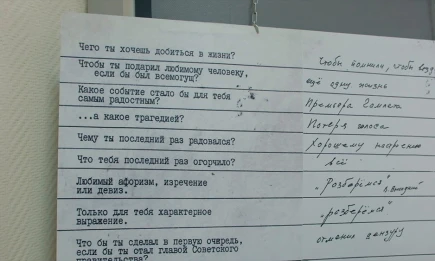 Чего ты хочешь добиться в жизни?
Чтобы помнили, чтобы везде
Чтобы ты подарил любимому человеку,
если бы был всемогущ?
ещё одну жизнь
Какое событие стало бы для тебя
самым радостным?
Премьера Гамлета
...а какое трагедией?
Потеря голоса
Чему ты последний раз радовался?
Хорошему настроению
Что тебя последний раз огорчило?
всё
Любимый афоризм, изречение
или девиз.
"Разберёмся"
Только для тебя характерное
выражение.
"разберёмся"
Что бы ты сделал в первую очередь,
если бы ты стал главой Советского
правительства?
отменил цензуру